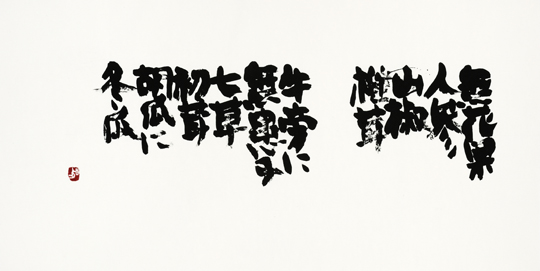 無花果
人参
山椒
椎茸
牛旁に
無患子
七草
初茸
胡瓜に
冬瓜